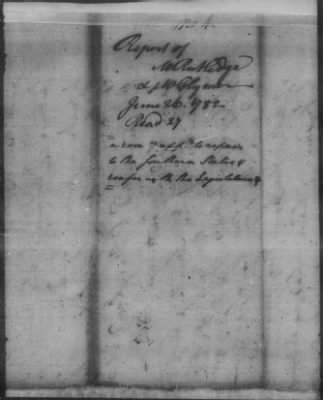 No 4.
Report of
Mr Rutledge
& Mr Clymer
June 26. 1782
Read 27
a com appd to repair
to the Southern States &
confer with the Legislatures